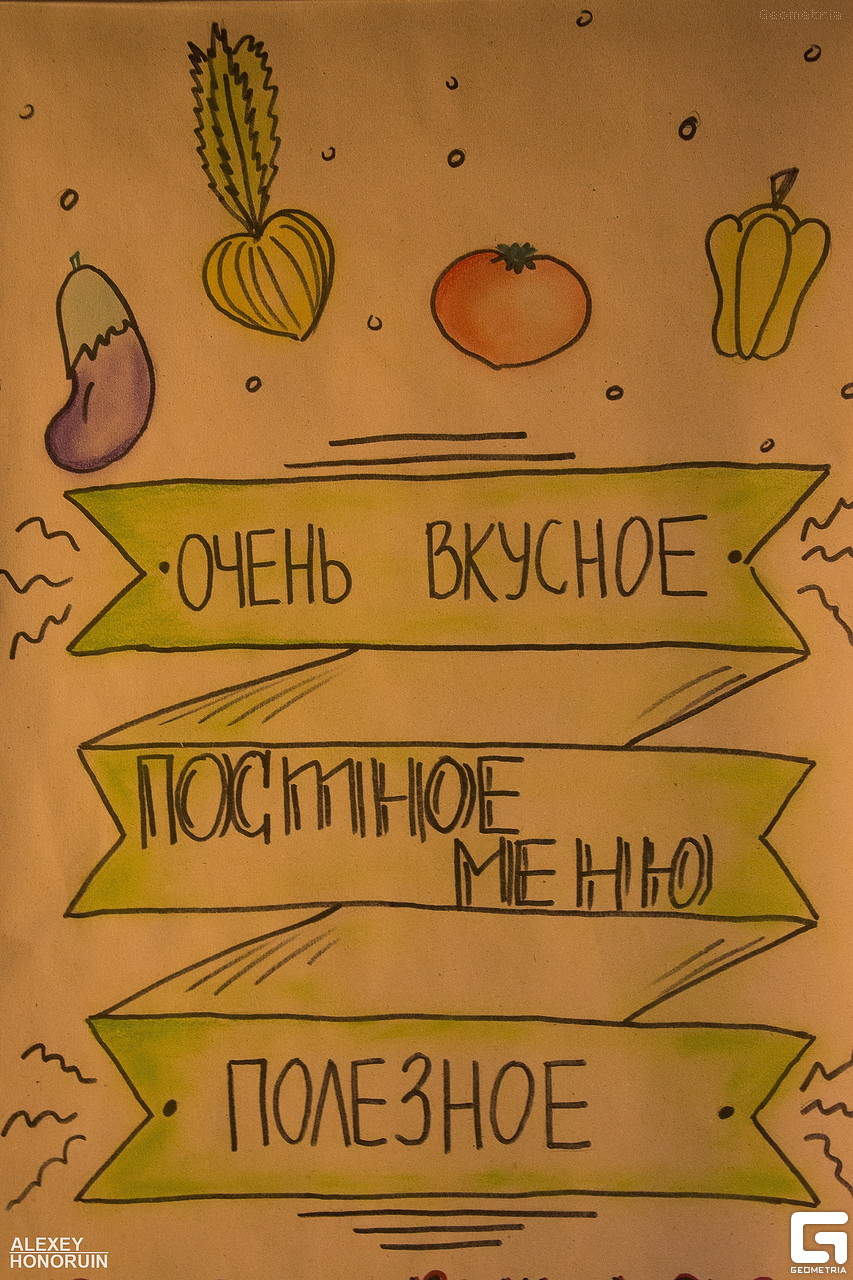 Geometria
ОЧЕНЬ ВКУСНОЕ
ПОСТНОЕ
МЕНЮ
ПОЛЕЗНОЕ
ALEXEY
HONORUIN
GEOMETRIA